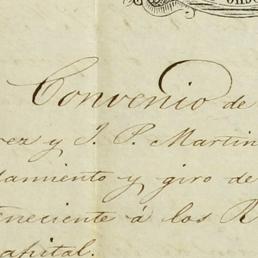 Convenio de
rez y J. P. Martin
lamiento y giro de
teneciente á los R
apital.